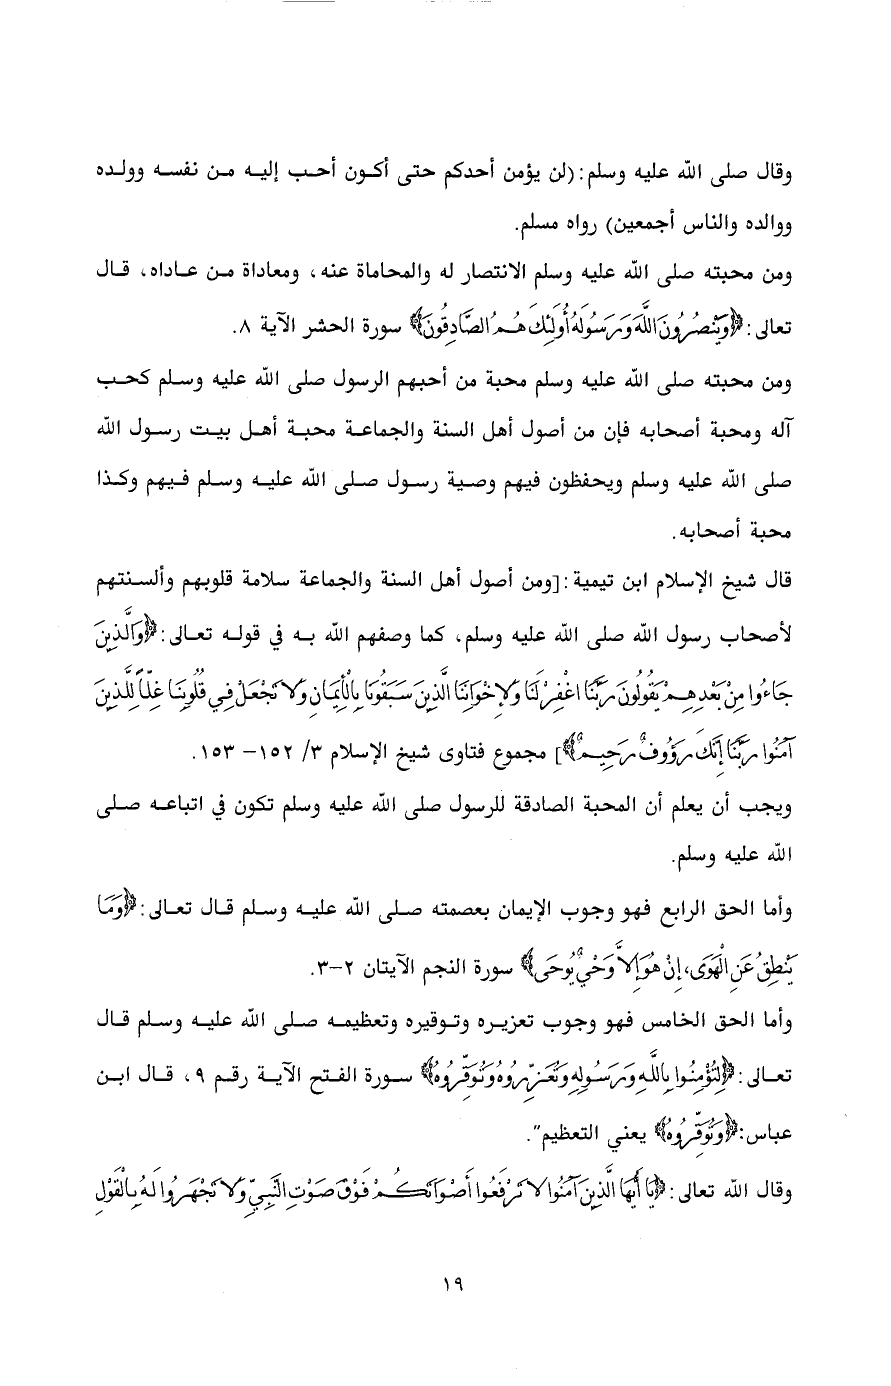 وقال صلى الله عليه وسلم: (لن يؤمن أحدكم حتى أكون أحب إليه من نفسه وولده
ووالده والناس أجمعين) رواه مسلم.
ومن محبته صلى الله عليه وسلم الانتصار له والمحاماة عنه، ومعاداة من عاداه، قال
تعالى: ﴿وَيَنْصُرُونَ اللَّهَ وَرَسُولَهُ أُولَئِكَ هُمُ الصَّادِقُونَ﴾ سورة الحشر الآية ٨.
ومن محبته صلى الله عليه وسلم محبة من أحبهم الرسول صلى الله عليه وسلم كحب
آله ومحبة أصحابه فإن من أصول أهل السنة والجماعة محبة أهل بيت رسول الله
صلى الله عليه وسلم ويحفظون فيهم وصية رسول صلى الله عليه وسلم فيهم وكذا
محبة أصحابه.
قال شيخ الإسلام ابن تيمية: [ومن أصول أهل السنة والجماعة سلامة قلوبهم وألسنتهم
لأصحاب رسول الله صلى الله عليه وسلم، كما وصفهم الله به في قوله تعالى: ﴿وَالَّذِينَ
جَاءُوا مِنْ بَعْدِهِمْ يَقُولُونَ رَبَّنَا اغْفِرْ لَنَا وَلِإِخْوَانِنَا الَّذِينَ سَبَقُونَا بِالْأِيمَانِ وَلا تَجْعَلْ فِي قُلُوبِنَا غِلّاً لِلَّذِينَ
آمَنُوا رَبَّنَا إِنَّكَ رَؤُوفٌ رَحِيمٌ﴾] مجموع فتاوى شيخ الإسلام ٣/ ١٥٢- ١٥٣.
ويجب أن يعلم أن المحبة الصادقة للرسول صلى الله عليه وسلم تكون في اتباعه صلى
الله عليه وسلم.
وأما الحق الرابع فهو وجوب الإيمان بعصمته صلى الله عليه وسلم قال تعالى: ﴿وَمَا
يَنْطِقُ عَنِ الْهَوَى، إِنْ هُوَ إِلاَّ وَحْيٌ يُوحَى﴾ سورة النجم الآيتان ٢-٣.
وأما الحق الخامس فهو وجوب تعزيره وتوقيره وتعظيمه صلى الله عليه وسلم قال
تعالى: ﴿لِتُؤْمِنُوا بِاللَّهِ وَرَسُولِهِ وَتُعَزِّرُوهُ وَتُوَقِّرُوهُ﴾ سورة الفتح الآية رقم ٩، قال ابن
عباس: ﴿وَتُوَقِّرُوهُ﴾ يعني التعظيم".
وقال الله تعالى: ﴿يَا أَيُّهَا الَّذِينَ آمَنُوا لا تَرْفَعُوا أَصْوَاتَكُمْ فَوْقَ صَوْتِ النَّبِيِّ وَلا تَجْهَرُوا لَهُ بِالْقَوْلِ
١٩